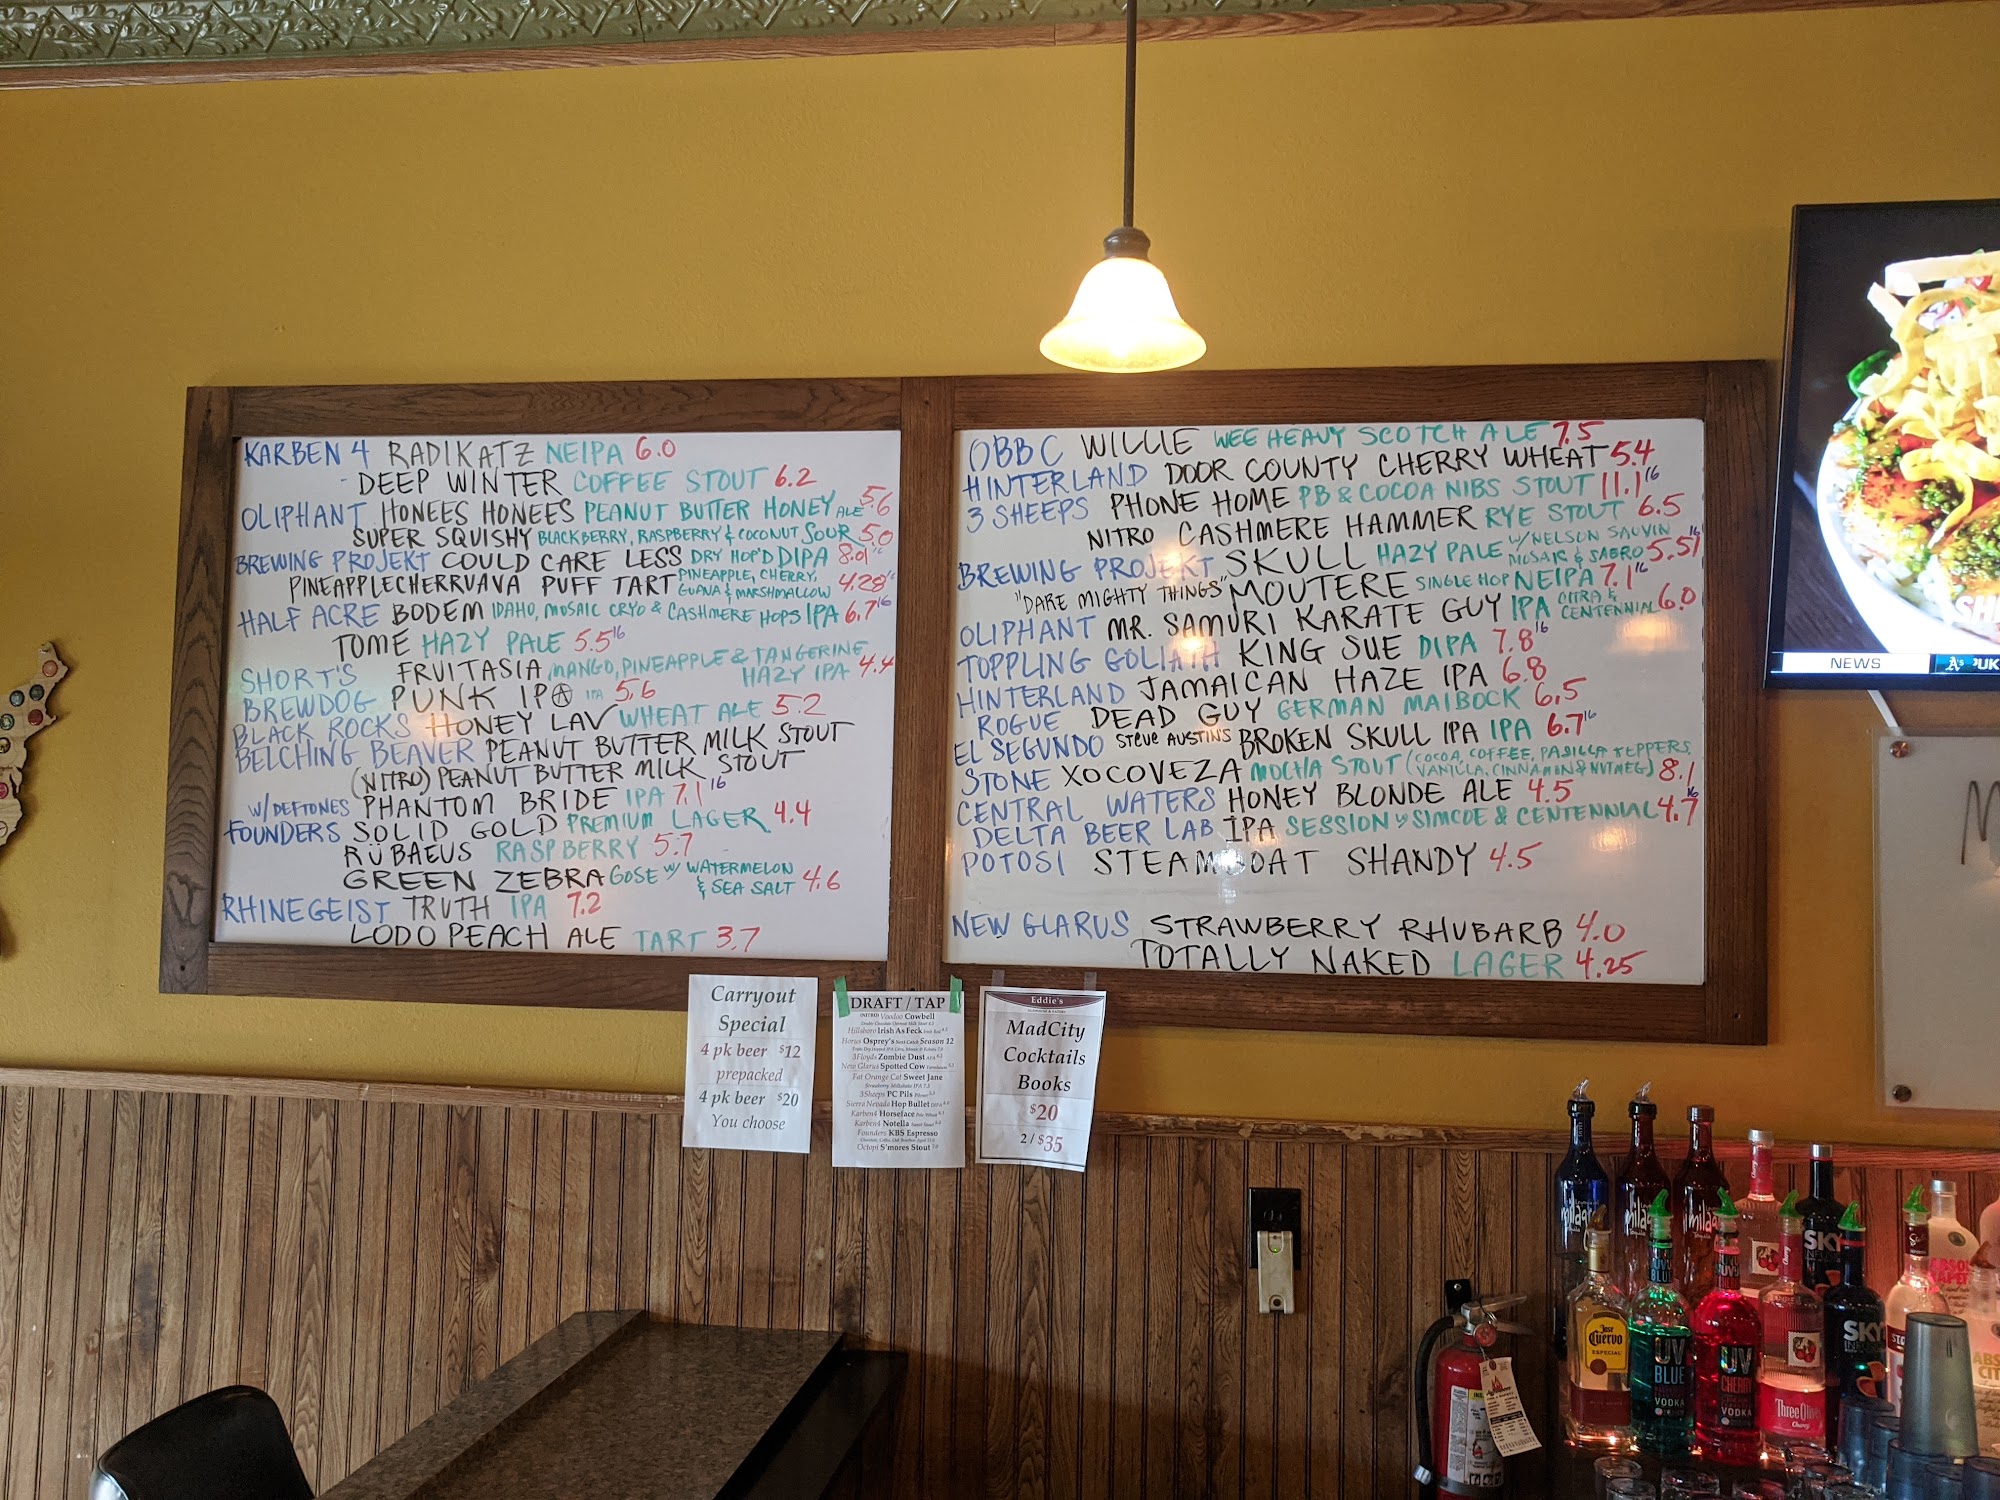 KARBEN 4 RADIKATZ NEIPA 6.0
DEEP WINTER COFFEE STOUT 6.2
OLIPHANT HONEES HONEES PEANUT BUTTER HONEY ALE 5.6
SUPER SQUISHY BLACKBERRY, RASPBERRY & COCONUT SOUR 5.0
BREWING PROJEKT COULD CARE LESS DRY HOP'D DIPA 8.01 16
PINEAPPLECHERRUAVA PUFF TART PINEAPPLE, CHERRY, GUAVA & MARSHMALLOW 4.28 16
HALF ACRE BODEM IDAHO, MOSAIC CRYO & CASHMERE HOPS IPA 6.7 16
TOME HAZY PALE 5.5 16
SHORT'S FRUITASIA MANGO, PINEAPPLE & TANGERINE HAZY IPA 4.4
BREWDOG PUNK IPA IPA 5.6
BLACK ROCKS HONEY LAV WHEAT ALE 5.2
BELCHING BEAVER PEANUT BUTTER MILK STOUT
(NITRO) PEANUT BUTTER MILK STOUT
W/ DEFTONES PHANTOM BRIDE IPA 7.1 16
FOUNDERS SOLID GOLD PREMIUM LAGER 4.4
RÜBAEUS RASPBERRY 5.7
GREEN ZEBRA GOSE W/ WATERMELON & SEA SALT 4.6
RHINEGEIST TRUTH IPA 7.2
LODO PEACH ALE TART 3.7
OBBC WILLIE WEE HEAVY SCOTCH ALE 7.5
HINTERLAND DOOR COUNTY CHERRY WHEAT 5.4
3 SHEEPS PHONE HOME PB & COCOA NIBS STOUT 11.1 16
NITRO CASHMERE HAMMER RYE STOUT 6.5
BREWING PROJEKT SKULL HAZY PALE W/ NELSON SAUVIN MOSAIC & SABRO 5.51 16
"DARE MIGHTY THINGS" MOUTERE SINGLE HOP NEIPA 7.1 16
OLIPHANT MR. SAMURI KARATE GUY IPA CITRA & CENTENNIAL 6.0
TOPPLING GOLIATH KING SUE DIPA 7.8 16
HINTERLAND JAMAICAN HAZE IPA 6.8
ROGUE DEAD GUY GERMAN MAIBOCK 6.5
EL SEGUNDO STEVE AUSTINS BROKEN SKULL IPA IPA 6.7 16
STONE XOCOVEZA MOCHA STOUT (COCOA, COFFEE, PASILLA PEPPERS, VANILLA, CINNAMON & NUTMEG) 8.1
CENTRAL WATERS HONEY BLONDE ALE 4.5
DELTA BEER LAB IPA SESSION W/ SIMCOE & CENTENNIAL 4.7 16
POTOSI STEAMBOAT SHANDY 4.5
NEW GLARUS STRAWBERRY RHUBARB 4.0
TOTALLY NAKED LAGER 4.25
NEWS A's
Carryout
Special
4 pk beer $12
prepacked
4 pk beer $20
You choose
DRAFT / TAP
(NITRO) Voodoo Cowbell
Hillsboro Irish As Feck
Horus Osprey's Season 12
3Floyds Zombie Dust
New Glarus Spotted Cow
Fat Orange Cat Sweet Jane
Strawberry Milkshake IPA
3Sheeps PC Pils
Sierra Nevada Hop Bullet
Karben4 Horseface
Karben4 Notella
Founders KBS Espresso
Octopi S'mores Stout
Eddie's
MadCity
Cocktails
Books
$20
2 / $35
milagro
SKYY
Jose
Cuervo
ESPECIAL
UV
BLUE
VODKA
UV
CHERRY
VODKA
Three Olives
Cherry
SKYY